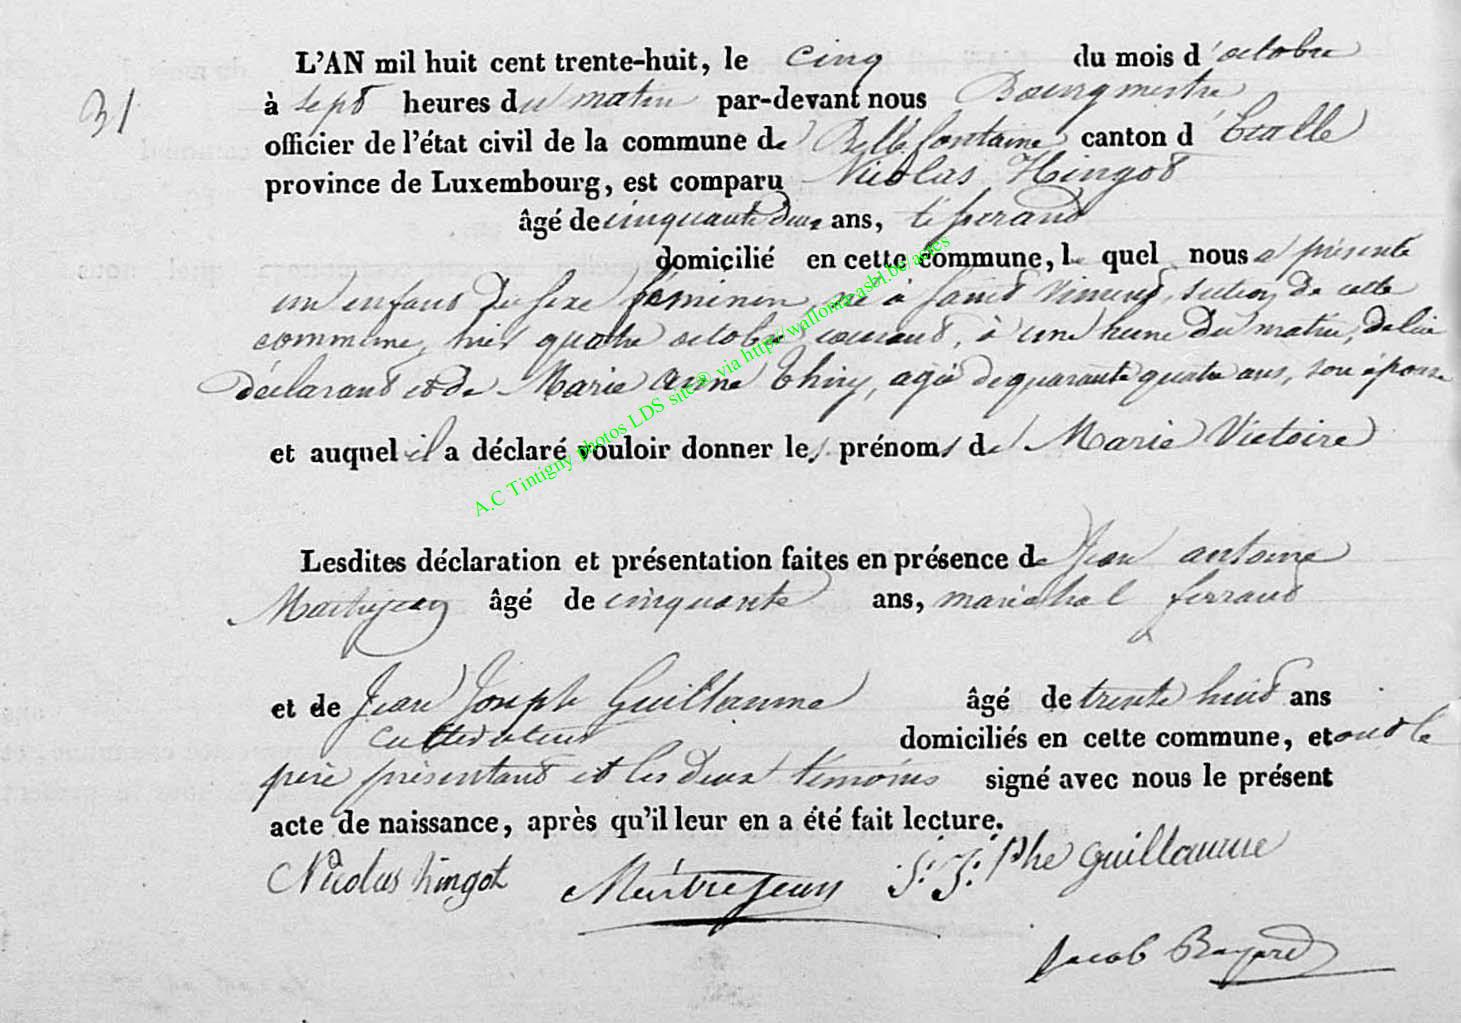 L'AN mil huit cent trente-huit, le cinq du mois d'octobre
31
à sept heures du matin par-devant nous Bourgmestre
officier de l'état civil de la commune de Bellefontaine canton d'Etalle
province de Luxembourg, est comparu Nicolas Hingot
âgé de cinquante deux ans, tisserand
domicilié en cette commune, lequel nous a présenté
un enfant du sexe féminin, né à Saint Vincent, section de cette
commune, hier quatre octobre courant, à une heure du matin, de lui
déclarant et de Marie anne Thiry, agée de quarante quatre ans, son épouse
et auquel il a déclaré vouloir donner les prénoms de Marie Victoire
A.C Tintigny photos LDS site® via http//wallonia.asbl.be/actes
Lesdites déclaration et présentation faites en présence de Jean antoine
Maitrejean âgé de cinquante ans, maréchal ferrant
et de Jean Joseph Guillaume âgé de trente huit ans
cultivateur domiciliés en cette commune, et ont le
père présentant et les deux témoins signé avec nous le présent
acte de naissance, après qu'il leur en a été fait lecture.
Nicolas hingot Meitrejean J: J:phe guillaume
Jacob Bayard